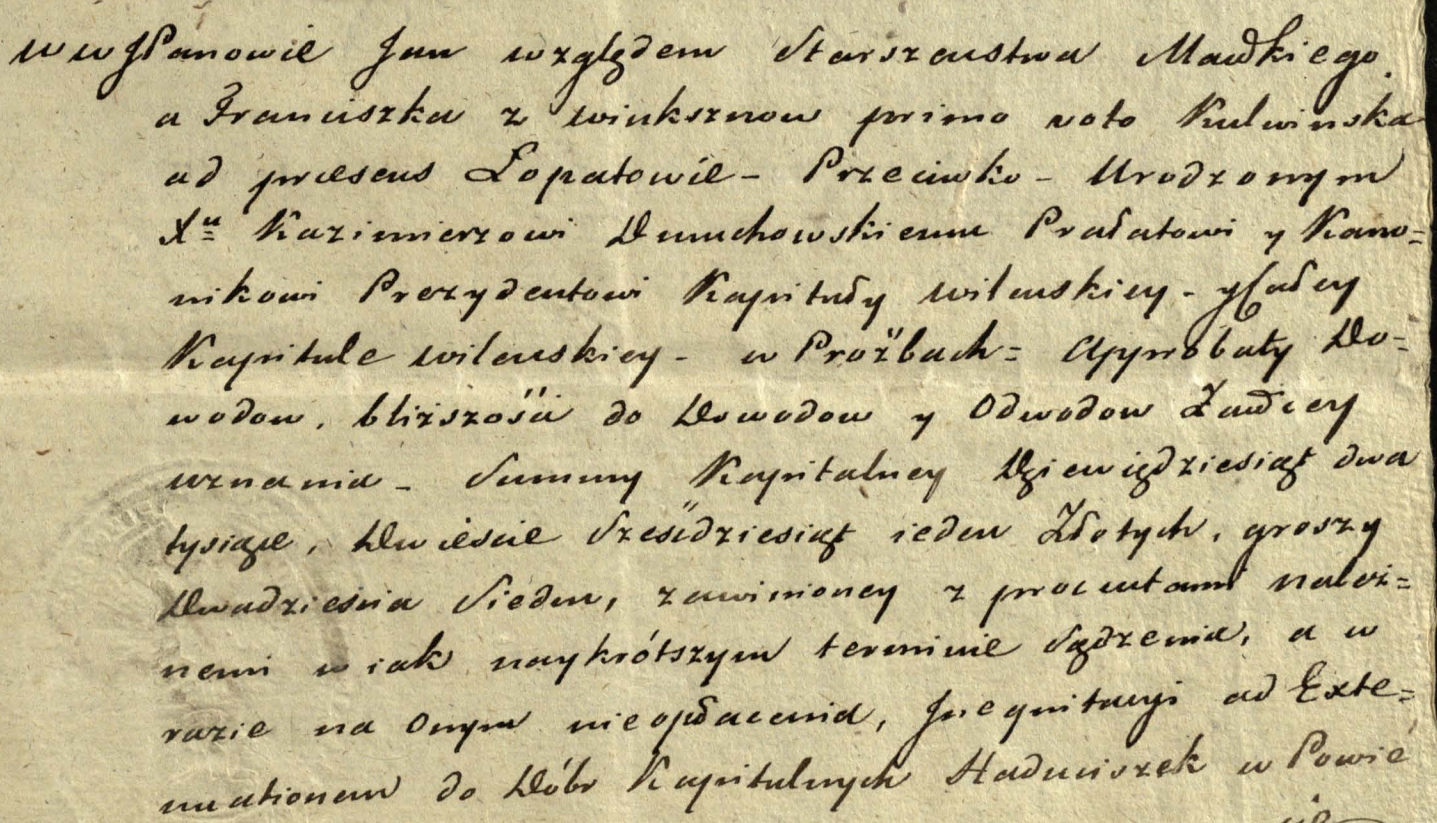 WWJPanowie Jan względem Starszeustwa Mawłkiego
a Franciszka z Winksznow primo voto Kulwinska
ad præsens Łopatowie - Przeciwko - Urodzonym
Xu Kazimierzowi Dmuchowskiemu Prałatowi y Kano=
nikowi Prezydentowi Kapituły Wilenskiey - y Całey
Kapitule Wilenskiey - w Proźbach= Approbaty Do=
wodow, bliższości do Dowodow y Odwodow Żałłcey
uznania - Summy Kapitalney Dziewięćdziesiąt dwa
tysiące, Dwieście Sześćdziesiąt ieden Złotych, groszy
Dwadzieścia Siedm, zawinioney z procentami należ=
nemi w iak naykrótszym terminie Sądzenia, a w
razie na Onym nieopłacenia, Jnequitacyi ad Exte=
nuationem do Dóbr Kapitulnych Haduciszek w Powie